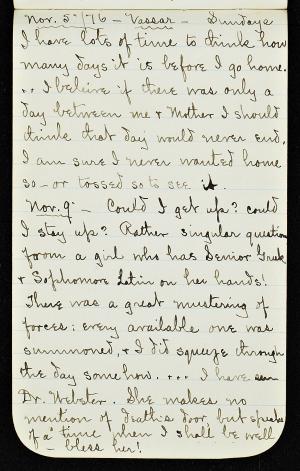 Nov. 5 /76 - Vassar - Sundays
I have lots of time to think how
many days it is before I go home.
.. I beleive if there was only a
day between me & Mother I should
think that day would never end.
I am sure I never wanted home
so - or tossed so to see it.
Nov. 9 - Could I get up? could
I stay up? Rather singular question
from a girl who has Senior Greek
& Sophomore Latin on her hands!
There was a great mustering of
forces: every available one was
summoned, & I did squeeze through
the day somehow. .... I have seen
Dr. Webster. She makes no
mention of death's door, but speaks
of "a time when I shall be well"
- bless her!